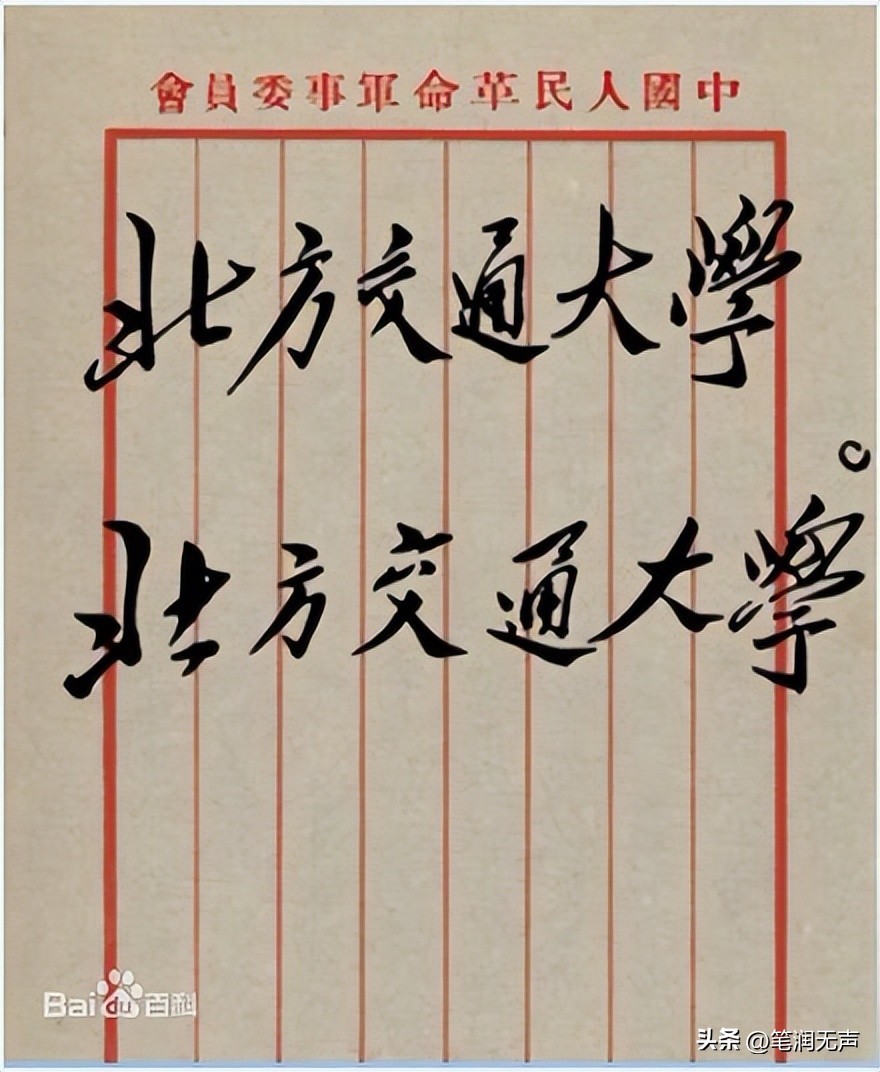 中國人民革命軍事委員會
北方交通大學
。
北方交通大學
Baidu百科
头条 @笔润无声